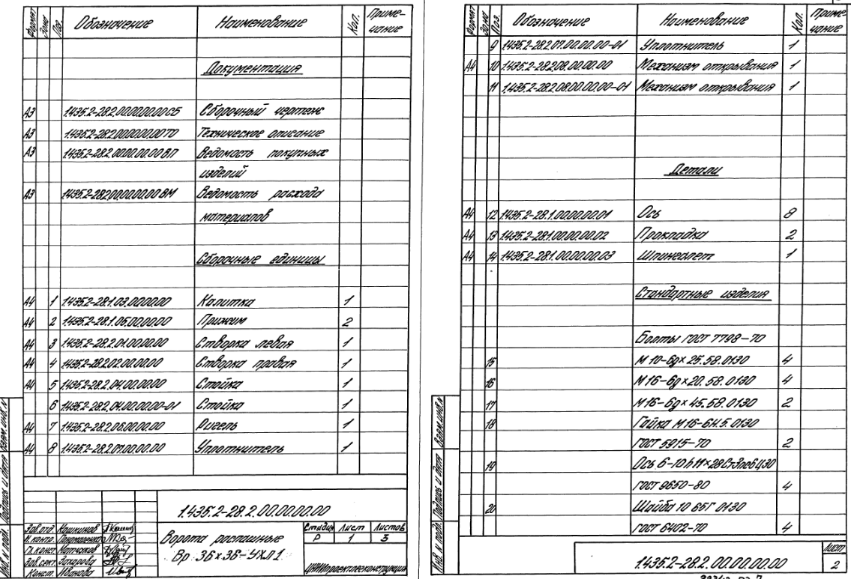 Формат Зона Поз. Обозначение Наименование Кол. Приме-
чание
Документация
А3 1.435.2-28.2.00.00.00.00СБ Сборочный чертеж
А3 1.435.2-28.2.00.00.00.00ТО Техническое описание
А3 1.435.2-28.2.00.00.00.00ВП Ведомость покупных
изделий
А3 1.435.2-28.2.00.00.00.00ВМ Ведомость расхода
материалов
Сборочные единицы
А4 1 1.435.2-28.1.03.00.00.00 Калитка 1
А4 2 1.435.2-28.1.05.00.00.00 Прижим 2
А4 3 1.435.2-28.2.01.00.00.00 Створка левая 1
А4 4 1.435.2-28.2.02.00.00.00 Створка правая 1
А4 5 1.435.2-28.2.04.00.00.00 Стойка 1
6 1.435.2-28.2.04.00.00.00-01 Стойка 1
А4 7 1.435.2-28.2.06.00.00.00 Ригель 1
А4 8 1.435.2-28.2.07.00.00.00 Уплотнитель 1
1.435.2-28.2.00.00.00.00
Зав.отд.
Н. контр.
Гл.конст.
Конст. Иванова
Ворота распашные
Вр 36×36-УХЛ1
Стадия Лист Листов
Р 1 3
ЦНИИпроектлегконструкция
Взам.инв.№
Подпись и дата
Инв.№ подл.
Формат Зона Поз. Обозначение Наименование Кол. Приме-
чание
9 1.435.2-28.2.07.00.00.00-01 Уплотнитель 1
А4 10 1.435.2-28.2.08.00.00.00 Механизм открывания 1
11 1.435.2-28.2.08.00.00.00-01 Механизм открывания 1
Детали
А4 12 1.435.2-28.1.00.00.00.01 Ось 8
А4 13 1.435.2-28.1.00.00.00.02 Прокладка 2
А4 14 1.435.2-28.1.00.00.00.03 Шпингалет 1
Стандартные изделия
Болты ГОСТ 7798-70
15 М 10-6g×25.58.0130 4
16 М16-6g×20.58.0130 4
17 М16-6g×45.58.0130 2
18 Гайка М16-6Н.5.0130
ГОСТ 5915-70 2
19 Ось 6-10h11×28
ГОСТ 9650-80 4
20 Шайба 10 65Г 0130
ГОСТ 6402-70 4
1.435.2-28.2.00.00.00.00
Лист
2
Взам.инв.№
Подпись и дата
Инв.№ подл.